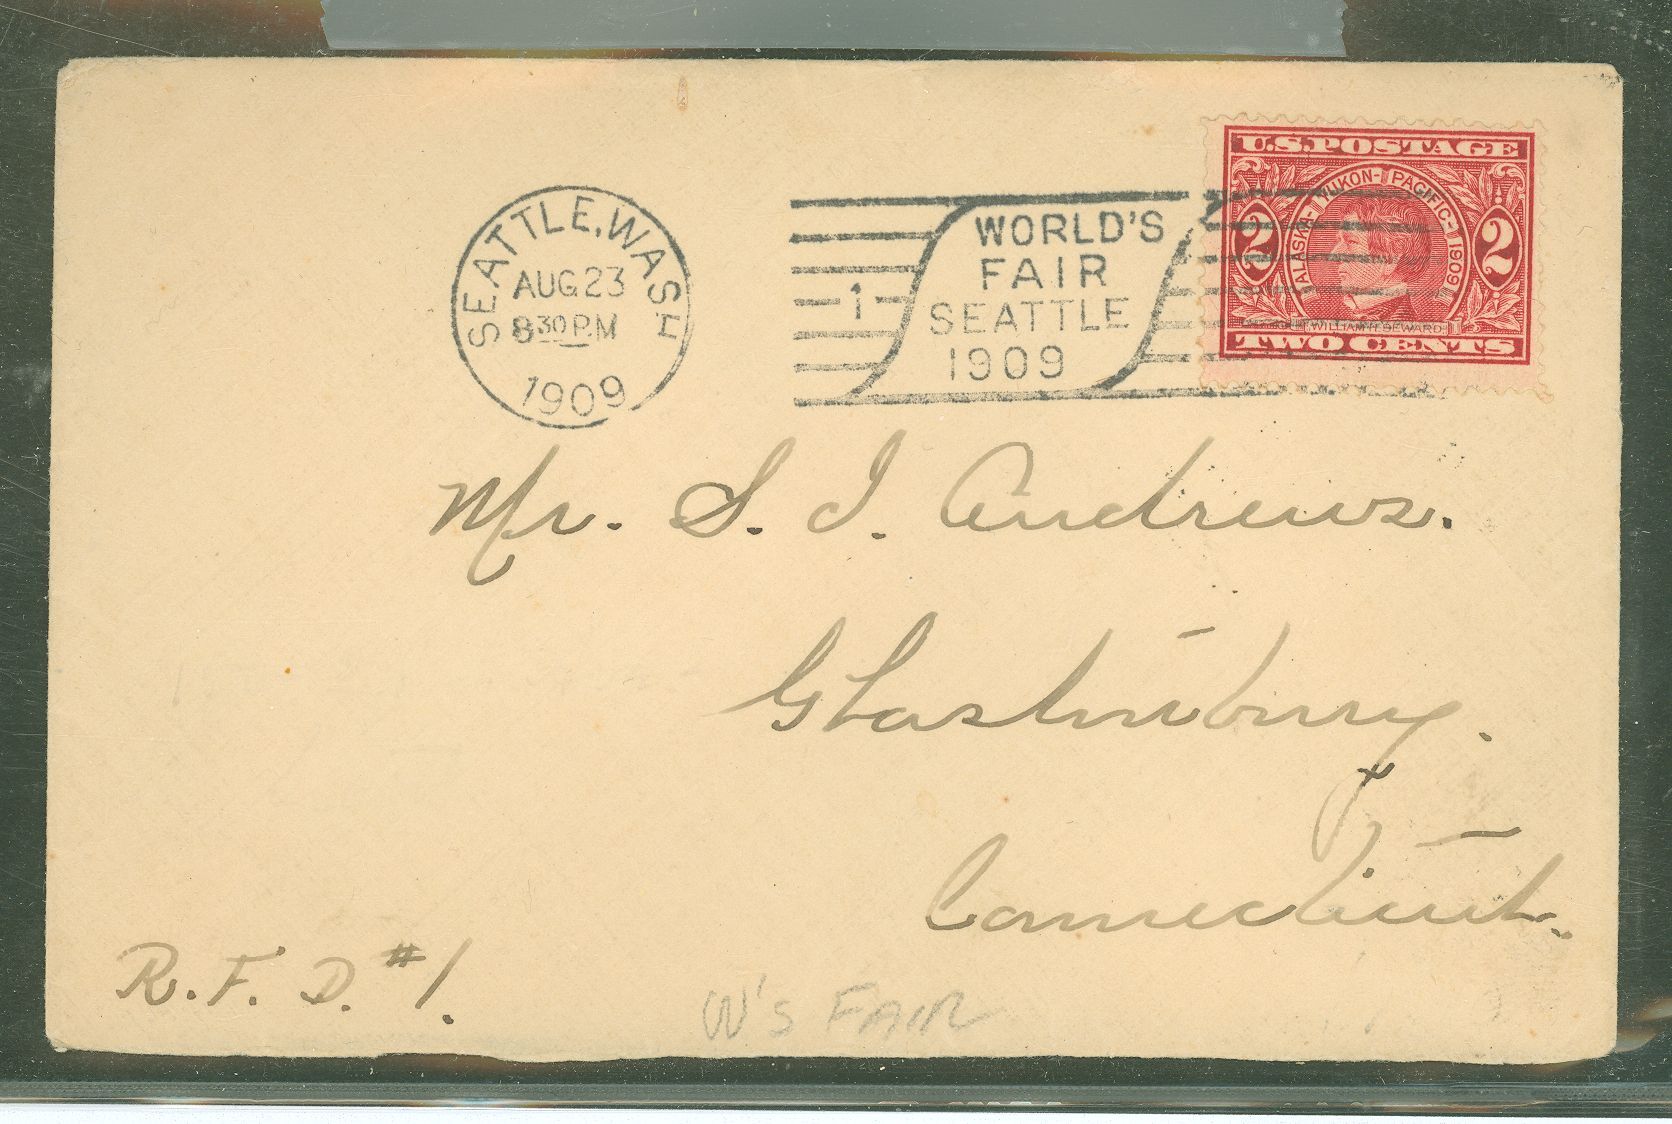 U.S.POSTAGE
ALASKA-YUKON-PACIFIC-1909
2 2
WILLIAM H. SEWARD
TWO CENTS
SEATTLE, WASH
AUG 23
8 30 P.M
1909
1
WORLD'S
FAIR
SEATTLE
1909
Mr. S. I. Andrews.
Glastonbury.
Connecticut.
R. F. D. #1.
W's FAIR